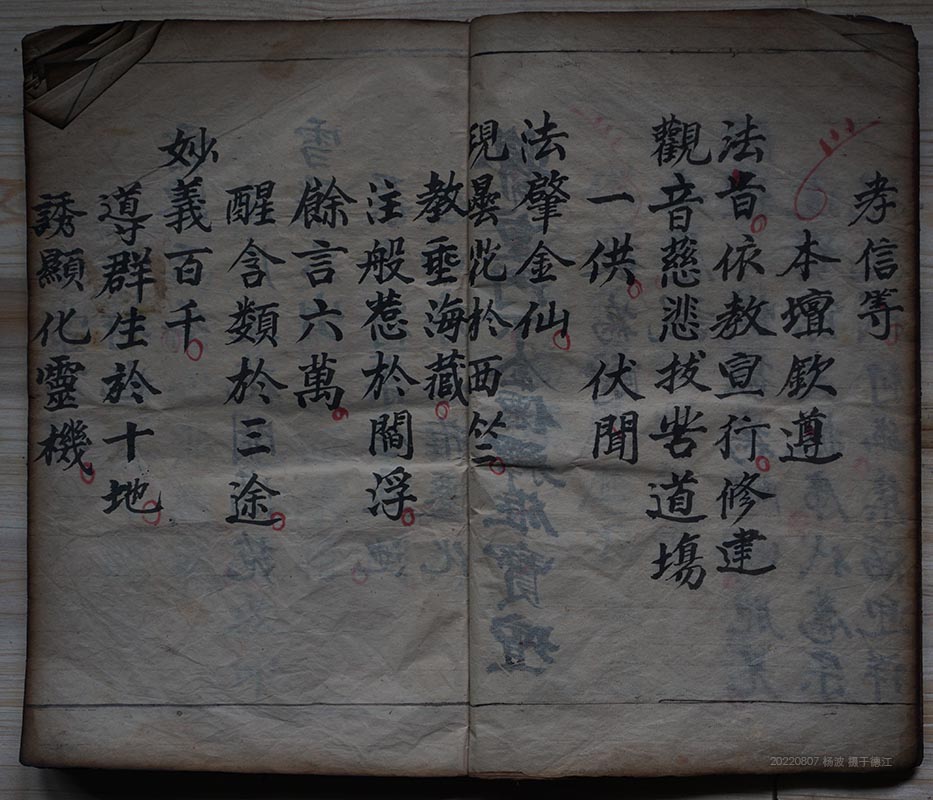 孝信等
本壇欽遵
法旨依教宣行修建
觀音慈悲拔苦道場
一供伏聞
法肇金仙
現曇花於西竺
教垂海藏
注般惹於閻浮
餘言六萬
醒含類於三途
妙義百千
導群生於十地
誘顯化靈機
20220807 杨波 摄于德江